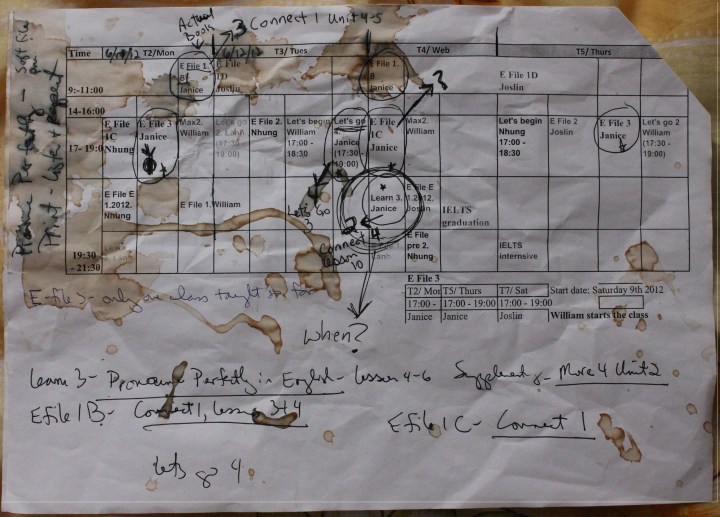 Actual Book
3 Connect 1 Unit 4-5
Pronounce Perfectly - Soft file
Print - Listen & Repeat
Time T2/Mon 6/12/12 T3/ Tues T4/ Web T5/ Thurs
9:-11:00
E File 1. B Janice
E File 1D Joslin
E File 1. B Janice
3
E File 1D Joslin
14-16:00
17- 19:0
E File 1C Nhung
E File 3 Janice
Max2. William
Let's go 2. (17:30 - 19:00)
E File 2. Nhung
Let's begin William 17:00 - 18:30
Let's go Janice (17:30 - 19:00)
E File 1C Janice
Max2. William
Let's begin Nhung 17:00 - 18:30
E File 2 Joslin
E File 3 Janice
Let's go 2 William (17:30 - 19:00)
E File E 1.2012. Nhung
E File 1. William
Let's Go 3
Learn 3. Janice
E File E 1.2012. Joslin
IELTS graduation
19:30 - 21:30
Connect Lesson 10
4
E File pre 2. Nhung
IELTS internsive
E File 3
T2/ Mon T5/ Thurs T7/ Sat Start date: Saturday 9th 2012
17:00 - 17:00 - 19:00 17:00 - 19:00
Janice Janice Joslin William starts the class
E-file 3 - only one class taught so far
When?
Learn 3- Pronounce Perfectly in English - Lesson 4-6 More 4 Unit 2
E File 1 B- Connect 1, Lesson 3+4
E File 1 C - Connect 1
Lets go 4